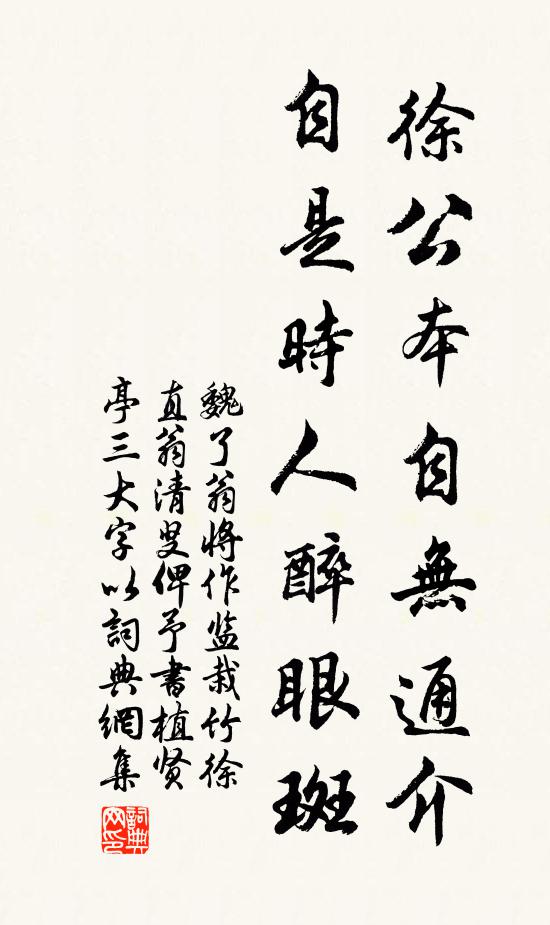 徐公本自無通介
自是時人醉眼斑
魏了翁將作监栽竹徐
直翁清叟俾予書植贤
亭三大字以詞典網集
詞典
网印